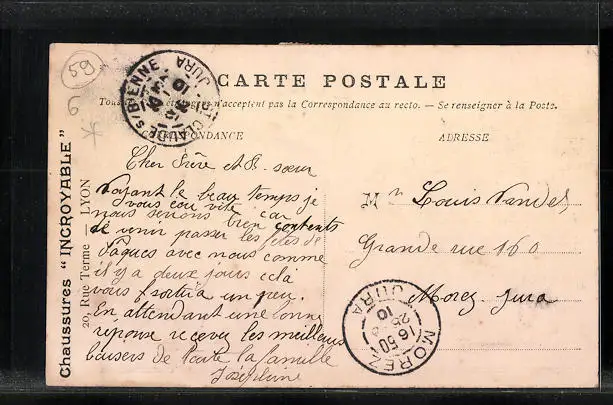 59
6
CARTE POSTALE
Tous les pays étrangers n'acceptent pas la Correspondance au recto. — Se renseigner à la Poste.
CORRESPONDANCE
ADRESSE
ST CLAUDE S/BIENNE
JURA
Chaussures "INCROYABLE"
20, Rue Terme — LYON
Cher frère et B. sœur
Voyant le beau temps je
vous écu vite car
nous serions bien contents
de venir passer les fêtes de
Pâques avec nous comme
il y a deux jours cela
vous sortira un peu.
En attendant une bonne
reponse recevez les meilleurs
baisers de toute la famille
Joséphine
Mr Louis Vandel
Grande rue 160
Morez Jura
MOREZ
JURA
16 50
25
10